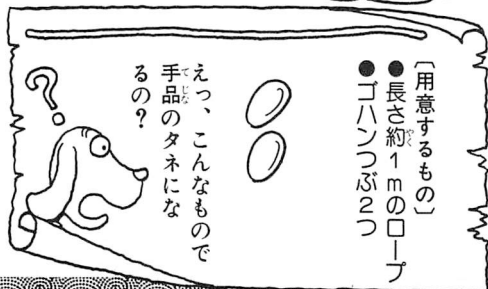 〔用意するもの〕
●長さ約1mのロープ
●ゴハンつぶ2つ
えっ、こんなもので
手品のタネにな
るの?